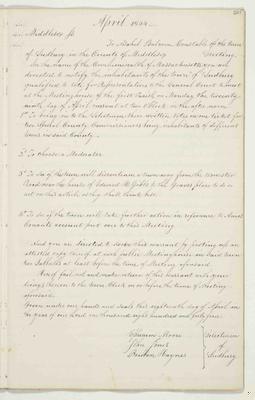 April 1844
Middlesex ss.
To Constable of the town
of Sudbury in the County of Middlesex Greeting.
In the name of the Commonwealth of Massachusetts you are
directed to notify the inhabitants of the town of Sudbury
qualified to vote for Representatives to the General Court to meet
at the Meetinghouse of the first Parish on Monday the twenty
ninth day of April current at two o'Clock in the afternoon.
1st To bring in to the Selectmen their written votes on one ticket for
two Special County Commissioners being inhabitants of different
towns in said County.
2d To choose a Moderator
3d To see if the town will discontinue a town way from the Worcester
Road near the house of to the Graves place so to
act on this article as they shall think best.
4th To see if the town will take further action in reference to Amos
account put over to this Meeting
And you are directed to serve this warrant by posting up an
attested copy thereof at each public Meetinghouse in said town
two Sabbaths at least before the time of Meeting aforesaid.
Hereof fail not and make return of this warrant with your
doings thereon to the town Clerk on or before the time of Meeting
aforesaid.
Given under our hands and seals this day of April in
the year of our Lord one thousand eight hundred and forty four.
Moore
Jones
Haynes
Selectmen
of
Sudbury